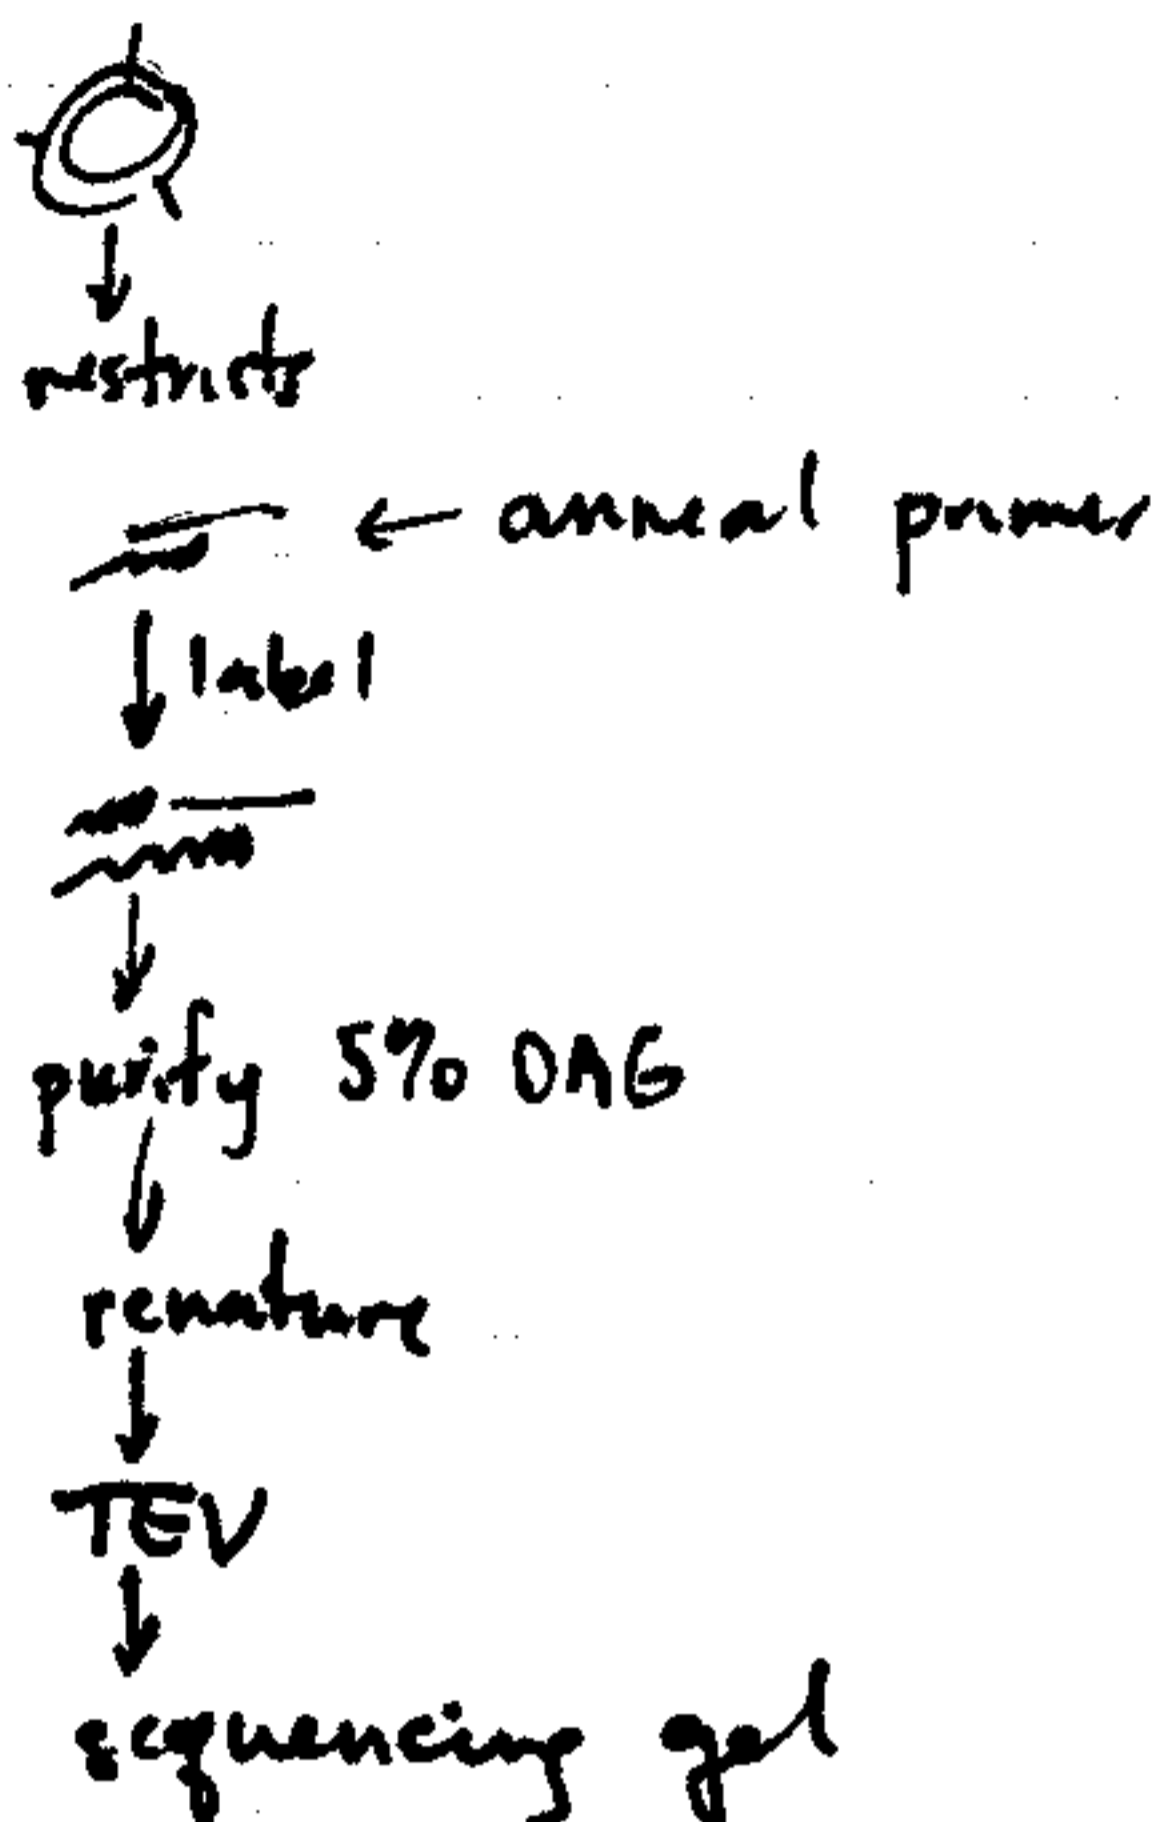 restricts
← anneal primer
label
purify 5% DAG
renature
TEV
sequencing gel